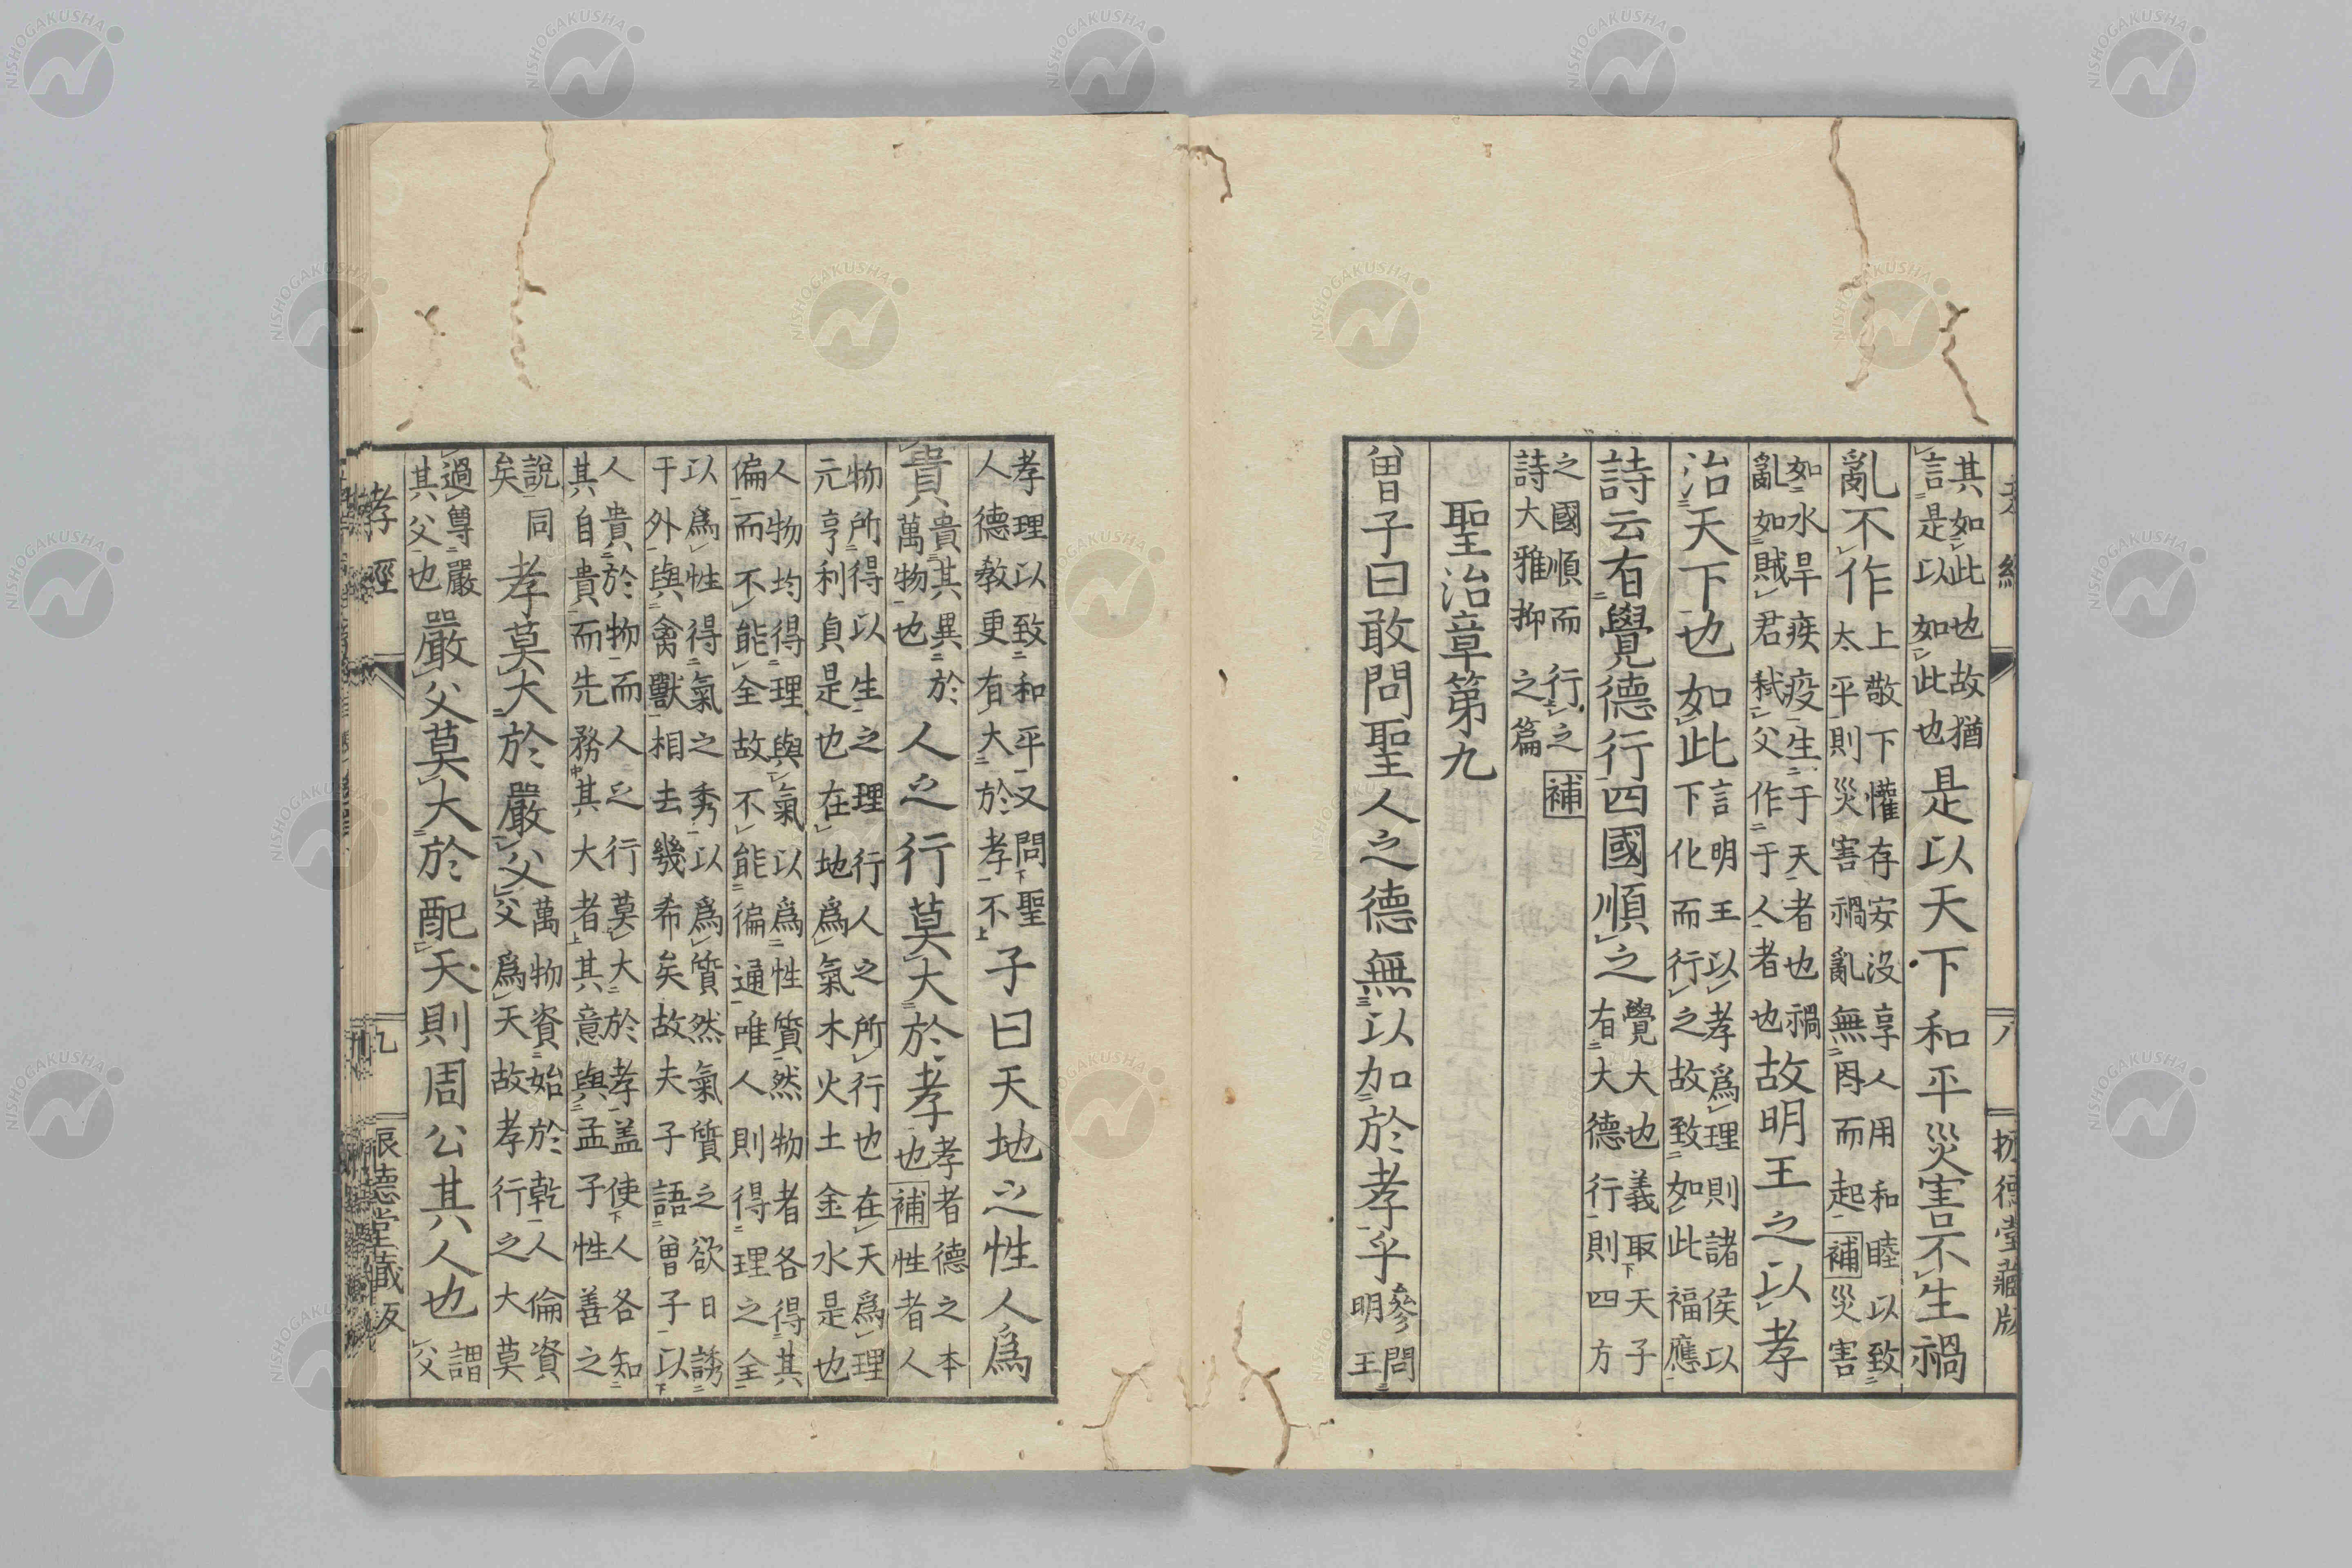 孝經 八 懷德堂藏版
其如此也故猶
言是以如此也
是以天下和平災害不生禍
亂不作
上敬下懽存安沒享人用和睦以致
太平則災害禍亂無因而起補災害
如水旱疾疫生于天者也禍
亂如賊君弒父作于人者也
故明王之以孝
治天下也如此
言明王以孝爲理則諸侯以
下化而行之故致如此福應
詩云有覺德行四國順之
覺大也義取天子
有大德行則四方
之國順而行之補
詩大雅抑之篇
聖治章第九
曾子曰敢問聖人之德無以加於孝乎
參問
明王
孝理以致和平又問聖
人德教更有大於孝不
子曰天地之性人爲
貴
貴其異於
萬物也
人之行莫大於孝
孝者德之本
也補性者人
物所得以生之理行人之所行也在天爲理
元亨利貞是也在地爲氣木火土金水是也
人物均得理與氣以爲性質然物者各得其
偏而不能全故不能徧通唯人則得理之全
以爲性得氣之秀以爲質然氣質之欲日誘
于外與禽獸相去幾希矣故夫子語曾子以
人貴於物而人之行莫大於孝盖使人各知
其自貴而先務其大者其意與孟子性善之
說同
矣
孝莫大於嚴父
萬物資始於乾人倫資
父爲天故孝行之大莫
過尊嚴
其父也
嚴父莫大於配天則周公其人也
謂
父
孝經 九 懷德堂藏版
NISHOGAKUSHA